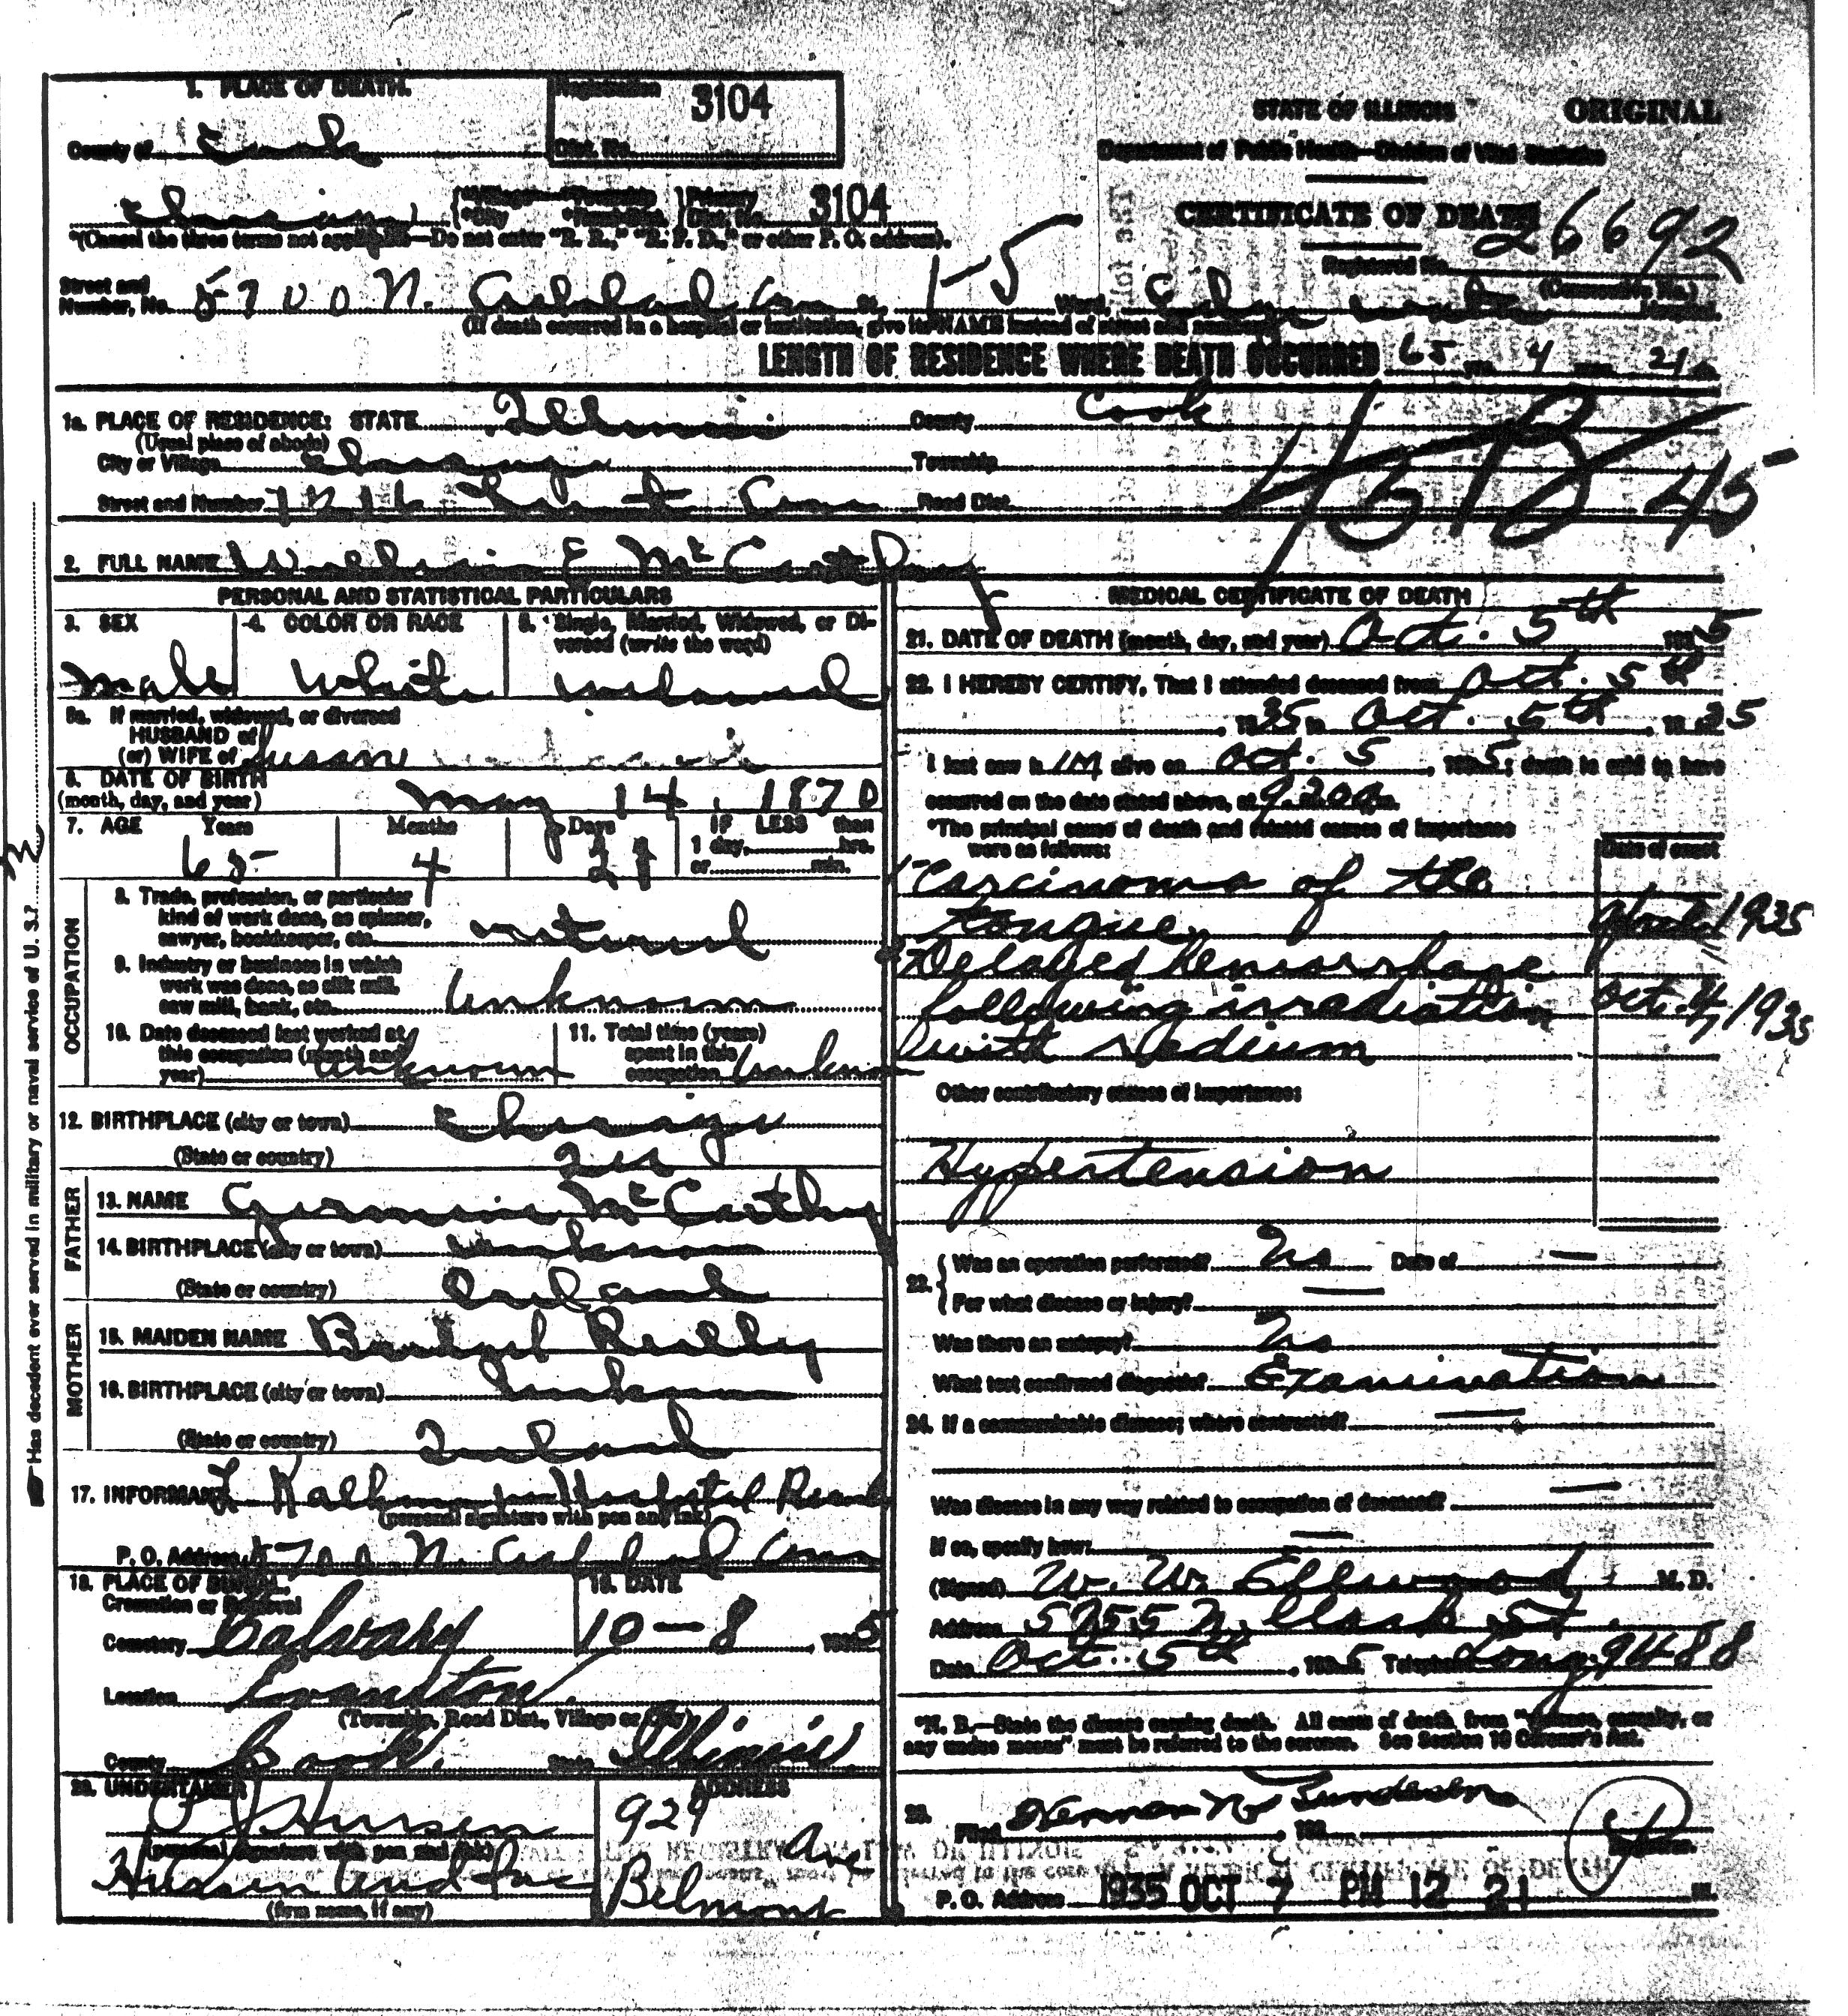 1. PLACE OF DEATH.
Registration 3104
Dist. No.
County of Cook
STATE OF ILLINOIS ORIGINAL
Department of Public Health—Division of Vital Statistics
Chicago *Village *Township Primary
*City *Road Dist. Dist. No. 3104
*(Cancel the three terms not applicable—Do not enter "R. R.," "R. F. D.," or other P. O. address).
CERTIFICATE OF DEATH
Registered No. 26692
(Consecutive No.)
Street and
Number, No. 5700 N. Ashland Ave St., 1-5 Ward, Hospital.
(If death occurred in a hospital or institution, give its NAME instead of street and number)
LENGTH OF RESIDENCE WHERE DEATH OCCURRED 65 yrs. 4 mos. 21 ds.
1a. PLACE OF RESIDENCE: STATE Illinois County Cook
(Usual place of abode)
City or Village Chicago Township
Street and Number Ave Road Dist.
45
2. FULL NAME William E McCarthy
PERSONAL AND STATISTICAL PARTICULARS
3. SEX 4. COLOR OR RACE 5. Single, Married, Widowed, or Di-
vorced (write the word)
Male White
5a. If married, widowed, or divorced
HUSBAND of
(or) WIFE of Susan
6. DATE OF BIRTH
(month, day, and year) May 14, 1870
7. AGE Years Months Days IF LESS than
1 day, hrs.
or min.
65 4 21
OCCUPATION
8. Trade, profession, or particular
kind of work done, as spinner,
sawyer, bookkeeper, etc. retired
9. Industry or business in which
work was done, as silk mill,
saw mill, bank, etc. Unknown
10. Date deceased last worked at
this occupation (month and
year) Unknown
11. Total time (years)
spent in this
occupation Unknown
12. BIRTHPLACE (city or town) Chicago
(State or country) Ill
FATHER
13. NAME McCarthy
14. BIRTHPLACE (city or town) unknown
(State or country) Ireland
MOTHER
15. MAIDEN NAME Reilly
16. BIRTHPLACE (city or town) unknown
(State or country) Ireland
17. INFORMANT Hospital
(personal signature with pen and ink)
P. O. Address 5700 N. Ashland Ave
18. PLACE OF BURIAL,
Cremation or Removal
Cemetery Calvary
19. DATE
10-8, 1935
Location Evanston
(Township, Road Dist., Village or City)
County Cook. State Illinois
20. UNDERTAKER ADDRESS
P J Hursen
(personal signature with pen and ink)
Hursen and
(firm name, if any)
929
Belmont Ave
Has decedent ever served in military or naval service of U. S.?
MEDICAL CERTIFICATE OF DEATH
21. DATE OF DEATH (month, day, and year) Oct. 5th 1935
22. I HEREBY CERTIFY, That I attended deceased from Oct. 5th
, 1935 to Oct. 5th, 1935
I last saw h im alive on Oct. 5, 1935; death is said to have
occurred on the date stated above, at 9.20 a m.
*The principal cause of death and related causes of importance
were as follows:
Date of onset
Carcinoma of the
tongue. 1935
Delayed hemorrhage
following irradiation Oct. 4, 1935
with radium
Other contributory causes of importance:
Hypertension
23. Was an operation performed? No Date of —
For what disease or injury? —
Was there an autopsy? No
What test confirmed diagnosis? Examination
24. If a communicable disease; where contracted? —
Was disease in any way related to occupation of deceased? —
If so, specify how: —
(Signed) W. W. Ellwood, M. D.
Address 5755 N. Clark St.
Date Oct. 5th, 1935 Telephone Long. 9488
*N. B.—State the disease causing death. All cases of death from "violence, casualty, or
any undue means" must be referred to the coroner. See Section 10 Coroner's Act.
25. Filed Herman N Bundesen, 193
Registrar.
P. O. Address 1935 OCT 7 PM 12 21 Ill.